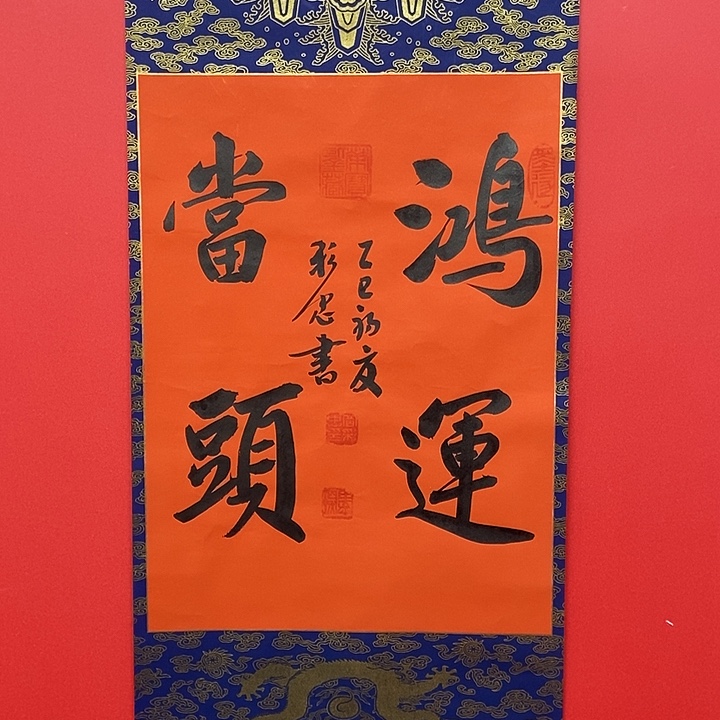 鴻運
當頭
乙巳初夏
彩忠書